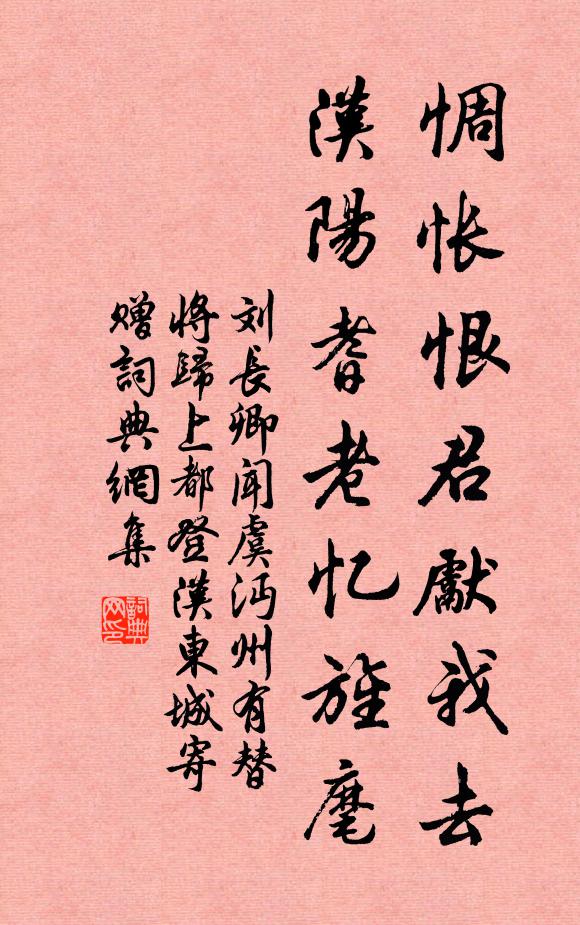 惆怅恨君獻我去
漢陽耆老忆旌麾
刘長卿闻虞沔州有替
將歸上都登漢東城寄
赠詞典網集
詞典网印